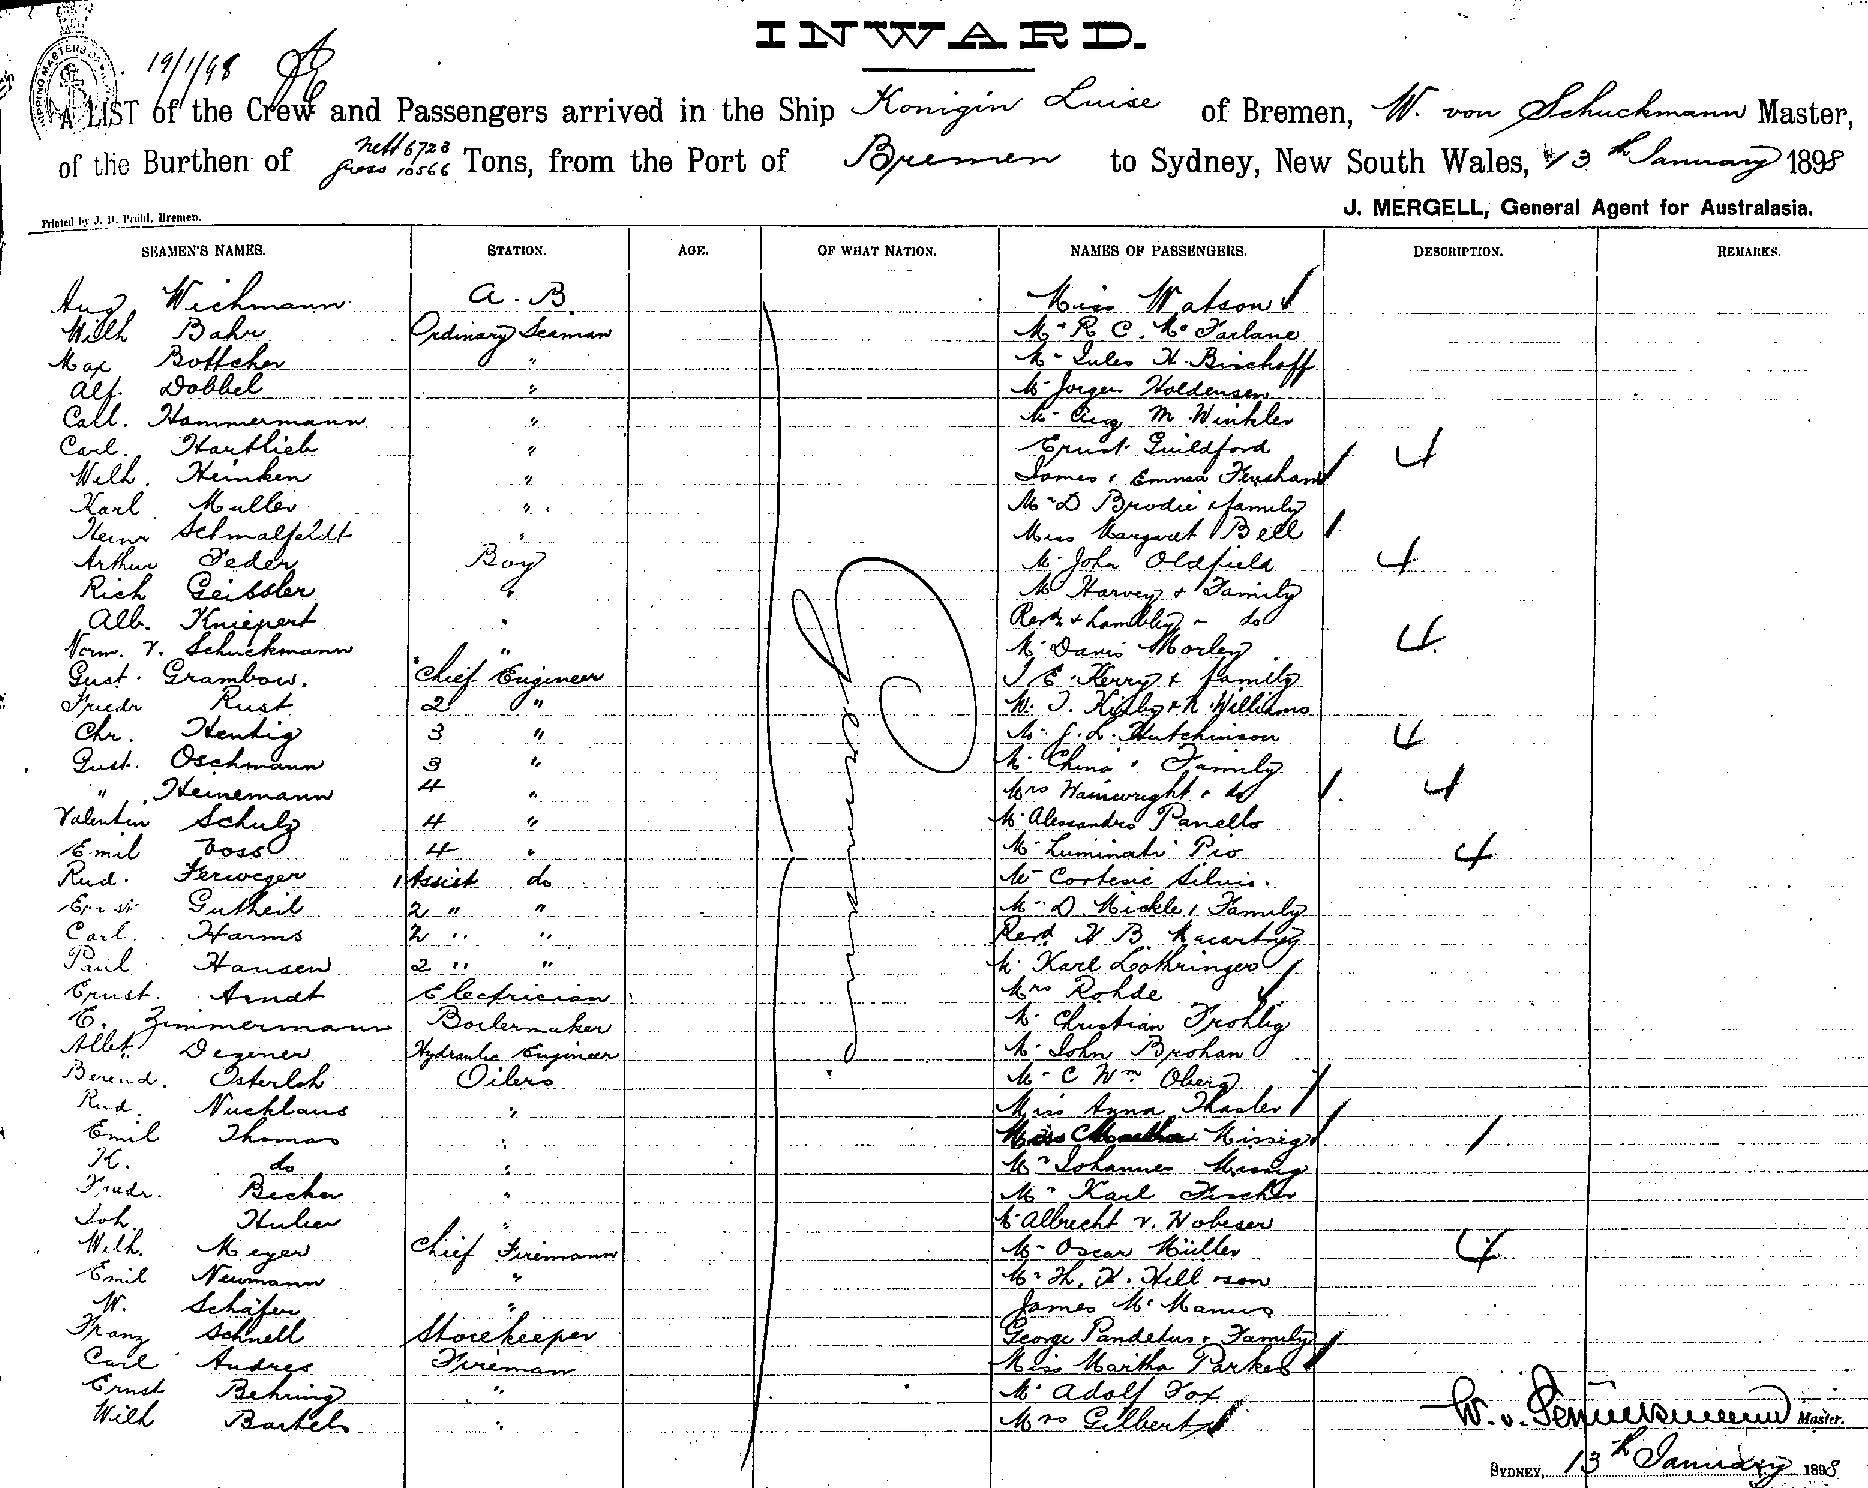 INWARD.
19/1/98
A LIST of the Crew and Passengers arrived in the Ship Konigin Luise of Bremen, W. von Schuckmann Master,
of the Burthen of Nett 6728 Gross 10566 Tons, from the Port of Bremen to Sydney, New South Wales, 13th January 1898
J. MERGELL, General Agent for Australasia.
Printed by J. H. Prühl, Bremen.
SEAMEN'S NAMES. STATION. AGE. OF WHAT NATION. NAMES OF PASSENGERS. DESCRIPTION. REMARKS.
Aug Wichmann A. B. Miss Watson
Wilh Bahr Ordinary Seaman Mr R. C. Mc Farlane
Max Bottcher " Mr Jules H. Bischoff
Alf. Dobbel " Mr Jorgen Holdensen
Call. Hammermann " Mr Aug M Winkler
Carl. Hartlieb " Ernst Guildford 4
Wilh. Heinken " James & Emma Fensham
Karl Muller " Mr D Brodie & family
Heinr Schmalfeldt " Miss Margaret Bell
Arthur Feder Boy Mr John Oldfield 4
Rich Geissler " Mr Harvey & Family
Alb. Kniepert " do
Norm. v. Schuckmann " Mr Davis Morley 4
Gust. Grambow. Chief Engineer J. E. Kerry & family
Friedr Rust 2 " W. J. Kirby & R Williams
Chr. Hentig 3 " Mr J. L. Hutchinson 4
Gust. Oschmann 3 " Mr China & Family
" Heinemann 4 " Mrs Wainwright & do 4
Valentin Schulz 4 " Mr Alessandro Panello
Emil Voss 4 " Mr Luminati Pio 4
Rud. Ferweger 1 Assist do Mr Cortesie Silvio.
Ernst Gutheil 2 " " Mr D Mickle & Family
Carl. Harms 2 " " Revd H. B. Macartney
Paul Hansen 2 " " Mr Karl Lothringer
Ernst. Arndt Electrician Mrs Rohde
E. Zimmermann Boilermaker Mr Christian Frohlig
Albt. Degener Hydraulic Engineer Mr John Brohan
Berend. Osterloh Oilers Mr C Wm Oberg
Rud. Nucklaus " Miss Anna Thasler
Emil Thomas " Missig
H. do " Mr Johannes Missig
Friedr. Becker " Mr Karl Fischer
Joh. Huber " Mr Albrecht v. Wobeser
Wilh. Meyer Chief Firemann Mr Oscar Müller 4
Emil Neumann " Mr H. H. Hill & son
W. Schäfer " James Mc Manus
Franz Schnell Storekeeper George Pandelus & Family
Carl Andres Fireman Miss Martha Parkes
Ernst Behring " Mr Adolf Fox
Wilh Bartels " Mrs Gilbert
Germany
W. v. Schuckmann Master.
SYDNEY, 13th January 1898